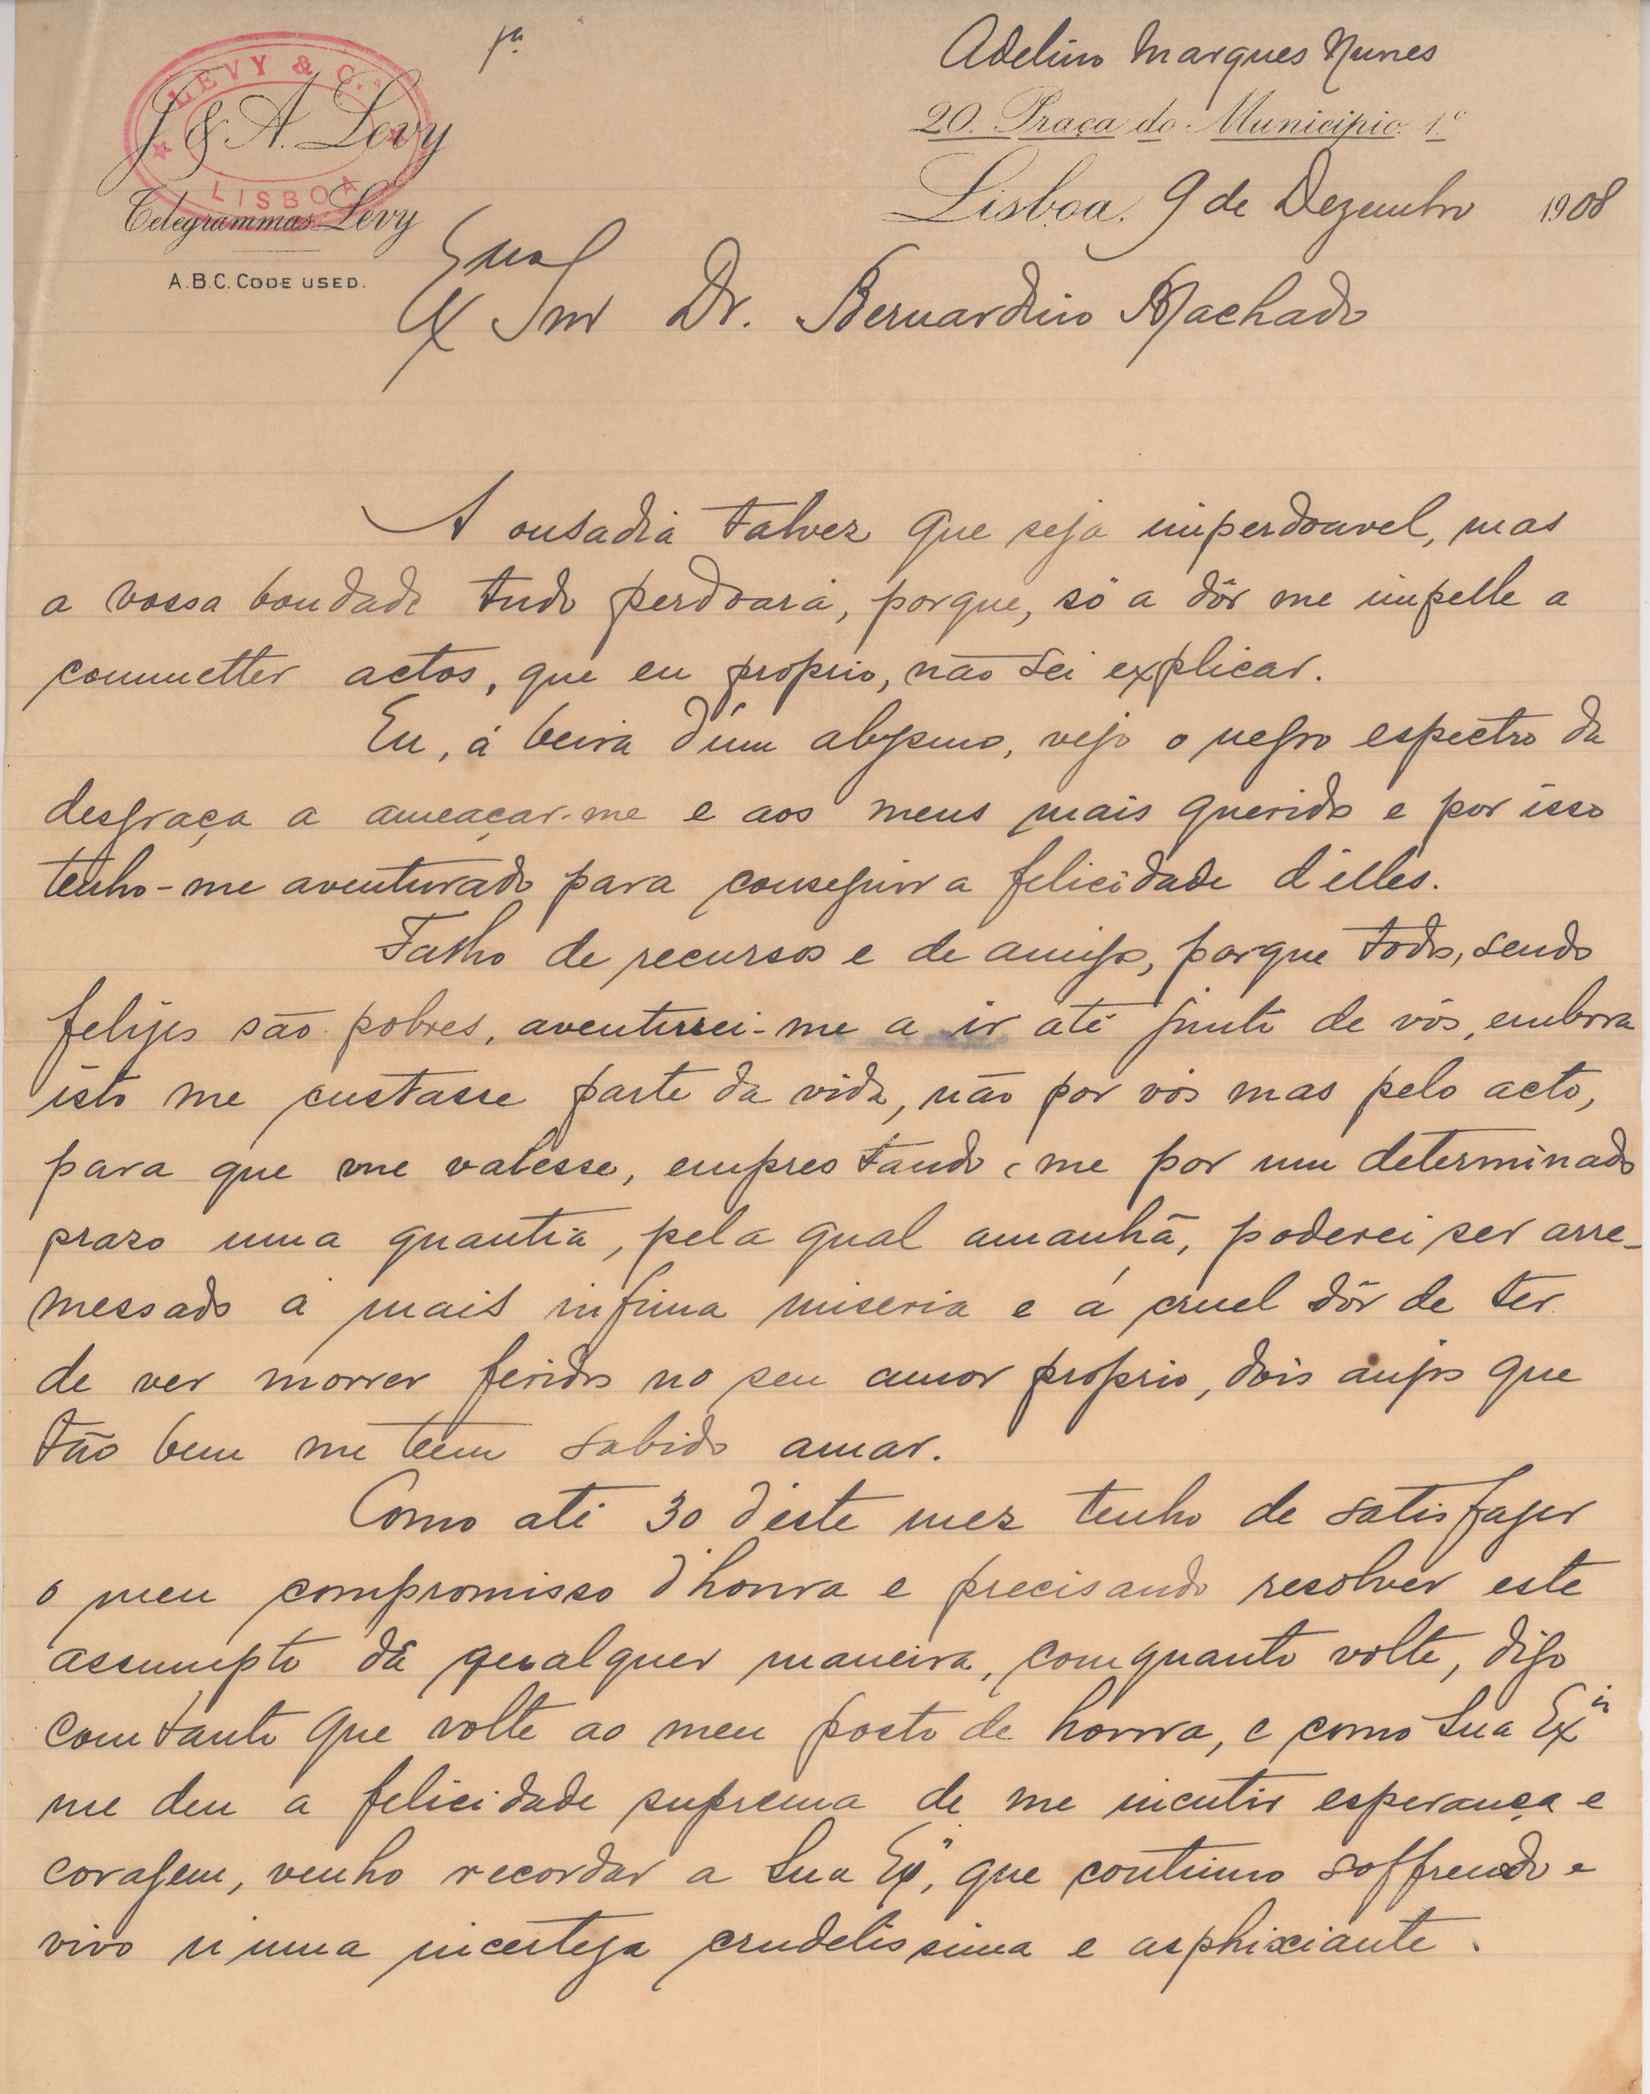 LEVY & C.ª
LISBOA
J. & A. Levy
Telegrammas Levy
A.B.C. CODE USED.
Adelino Marques Nunes
20. Praça do Municipio. 1º
Lisboa, 9 de Dezembro 1908
Exmo Snr Dr. Bernardino Machado
A ousadia talvez que seja imperdoavel, mas
a vossa bondade tudo perdoará, porque, só a dôr me impelle a
commetter actos, que eu proprio, não sei explicar.
Eu, á beira d'um abysmo, vejo o negro espectro da
desgraça a ameaçar-me e aos meus mais queridos e por isso
tenho-me aventurado para conseguir a felicidade d'elles.
Falho de recursos e de amigos, porque todos, sendo
felizes são pobres, aventurei-me a ir até junto de vós, embora
isto me custasse parte da vida, não por vós mas pelo acto,
para que me valesse, emprestando-me por um determinado
prazo uma quantia, pela qual amanhã, poderei ser arre-
messado á mais infima miseria e á cruel dôr de ter
de ver morrer feridos no seu amor proprio, dois anjos que
tão bem me teem sabido amar.
Como até 30 d'este mez tenho de satisfazer
o meu compromisso d'honra e precisando resolver este
assumpto dê qualquer maneira, comquanto volte, digo
comtanto que volte ao meu posto de honra, e como Sua Exª
me deu a felicidade suprema de me incutir esperança e
coragem, venho recordar a Sua Exª, que continuo soffrendo e
vivo n'uma incerteza crudelissima e asphixiante.